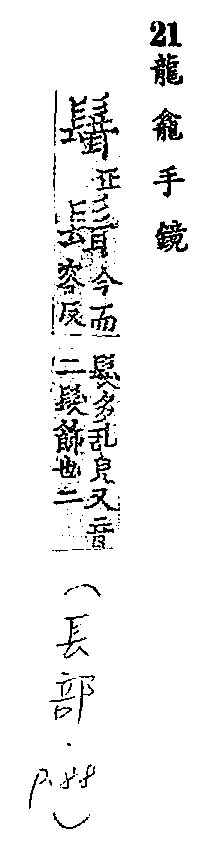 21 龍龕手鏡
正髶今而容反髮多乱皃又音二髮飾也二
（長部．p.88）